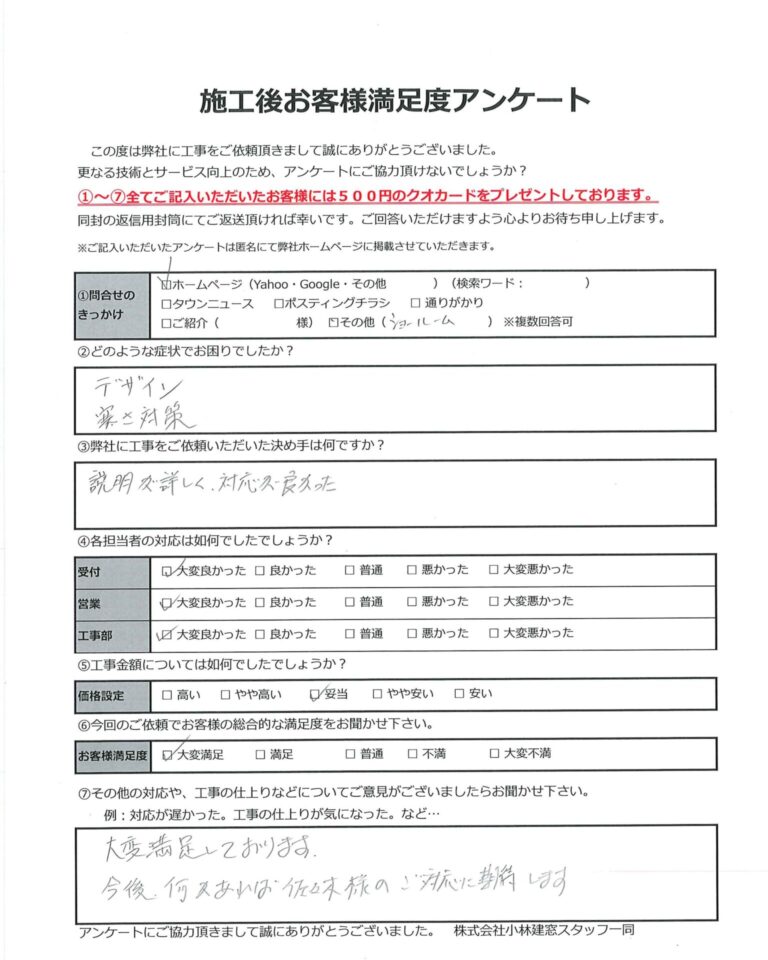 施工後お客様満足度アンケート
この度は弊社に工事をご依頼頂きまして誠にありがとうございました。
更なる技術とサービス向上のため、アンケートにご協力頂けないでしょうか？
①～⑦全てご記入いただいたお客様には５００円のクオカードをプレゼントしております。
同封の返信用封筒にてご返送頂ければ幸いです。ご回答いただけますよう心よりお待ち申し上げます。
※ご記入いただいたアンケートは匿名にて弊社ホームページに掲載させていただきます。
①問合せのきっかけ
☑ホームページ（Yahoo・Google・その他　　　）（検索ワード：　　　　　）
□タウンニュース　□ポスティングチラシ　□通りがかり
□ご紹介（　　　　　様）☑その他（ショールーム　　）※複数回答可
②どのような症状でお困りでしたか？
デザイン
寒さ対策
③弊社に工事をご依頼いただいた決め手は何ですか？
説明が詳しく、対応が良かった
④各担当者の対応は如何でしたでしょうか？
受付　☑大変良かった □良かった　□普通　□悪かった　□大変悪かった
営業　☑大変良かった □良かった　□普通　□悪かった　□大変悪かった
工事部　☑大変良かった □良かった　□普通　□悪かった　□大変悪かった
⑤工事金額については如何でしたでしょうか？
価格設定　□高い　□やや高い　☑妥当　□やや安い　□安い
⑥今回のご依頼でお客様の総合的な満足度をお聞かせ下さい。
お客様満足度　☑大変満足　□満足　□普通　□不満　□大変不満
⑦その他の対応や、工事の仕上りなどについてご意見がございましたらお聞かせ下さい。
例：対応が遅かった。工事の仕上りが気になった。など…
大変満足しております。
今後、何かあれば佐々木様のご対応に期待します
アンケートにご協力頂きまして誠にありがとうございました。　株式会社小林建窓スタッフ一同